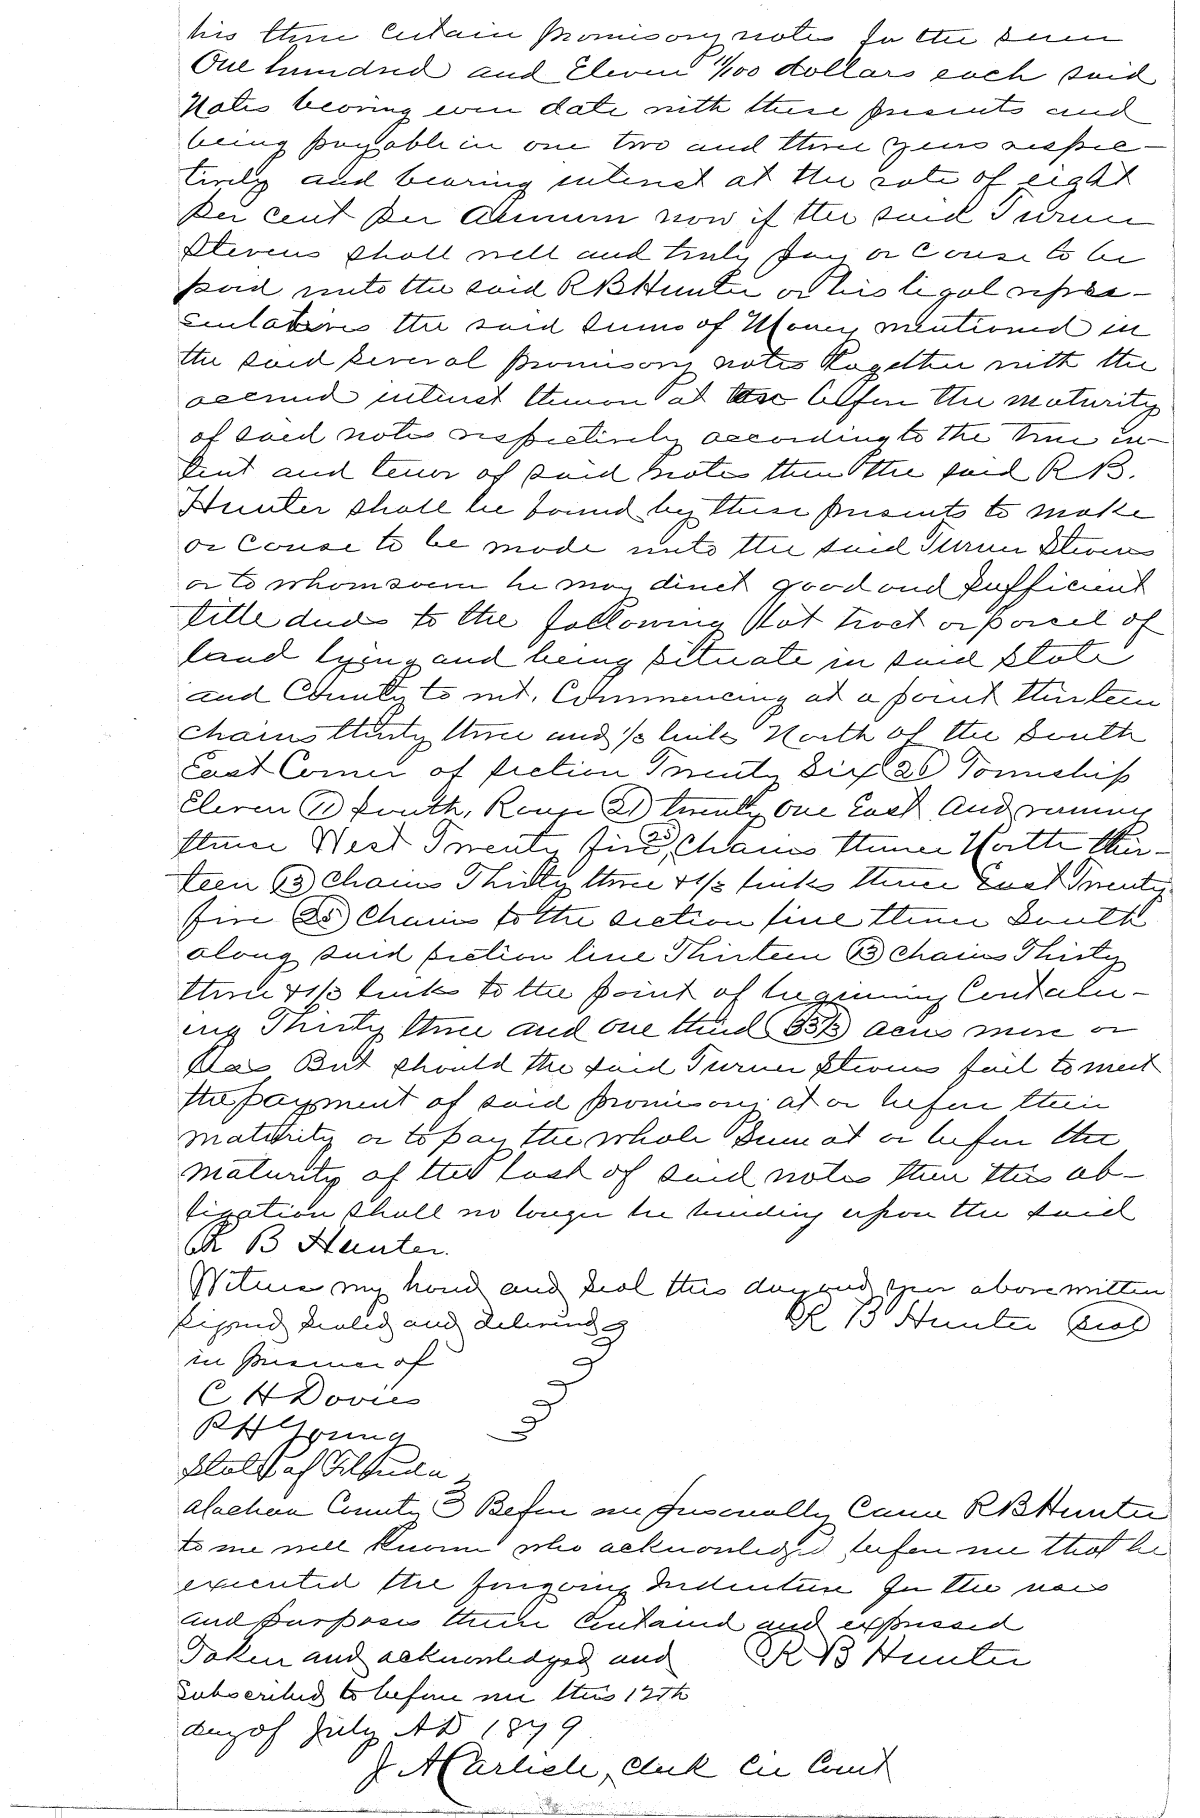 his three certain promisory notes for the sum
One hundred and Eleven 11/100 dollars each said
Notes bearing even date with these presents and
being payable in one two and three years respec-
tively and bearing interest at the rate of eight
per cent per Annum now if the said Turner
Stevens shall well and truly pay or cause to be
paid unto the said R B Hunter or his legal repre-
sentatives the said sums of Money mentioned in
the said several promisory notes together with the
accrued interest thereon at or before the maturity
of said notes respectively according to the true in-
tent and tenor of said notes then the said R B.
Hunter shall be bound by these presents to make
or cause to be made unto the said Turner Stevens
or to whomsoever he may direct good and sufficient
title deeds to the following lot tract or parcel of
land lying and being situate in said State
and County to wit. Commencing at a point thirteen
chains thirty three and 1/3 links North of the South
East Corner of section Twenty Six (26) Township
Eleven (11) South, Range (21) twenty one East and runing
thence West Twenty five (25) Chains thence North thir-
teen (13) Chains Thirty three & 1/3 links thence East Twenty
five (25) Chains to the section line thence South
along said section line Thirteen (13) chains Thirty
three & 1/3 links to the point of beginning Contain-
ing Thirty three and one third (33 1/3) acres more or
less. But should the said Turner Stevens fail to meet
the payment of said promisory at or before their
maturity or to pay the whole Sum at or before the
maturity of the last of said notes then this ob-
ligation shall no longer be binding upon the said
R B Hunter.
Witness my hand and seal this day and year above written
Signed sealed and delivered R B Hunter (seal)
in presence of
C H Davies
R H Young
State of Florida
Alachua County Before me personally Came R B Hunter
to me well known who acknowledged before me that he
executed the foregoing Indenture for the uses
and purposes therein Contained and expressed
Taken and acknowledged and R B Hunter
Subscribed to before me this 12th
day of July AD 1879
J A Carlisle, Clerk Cir Court